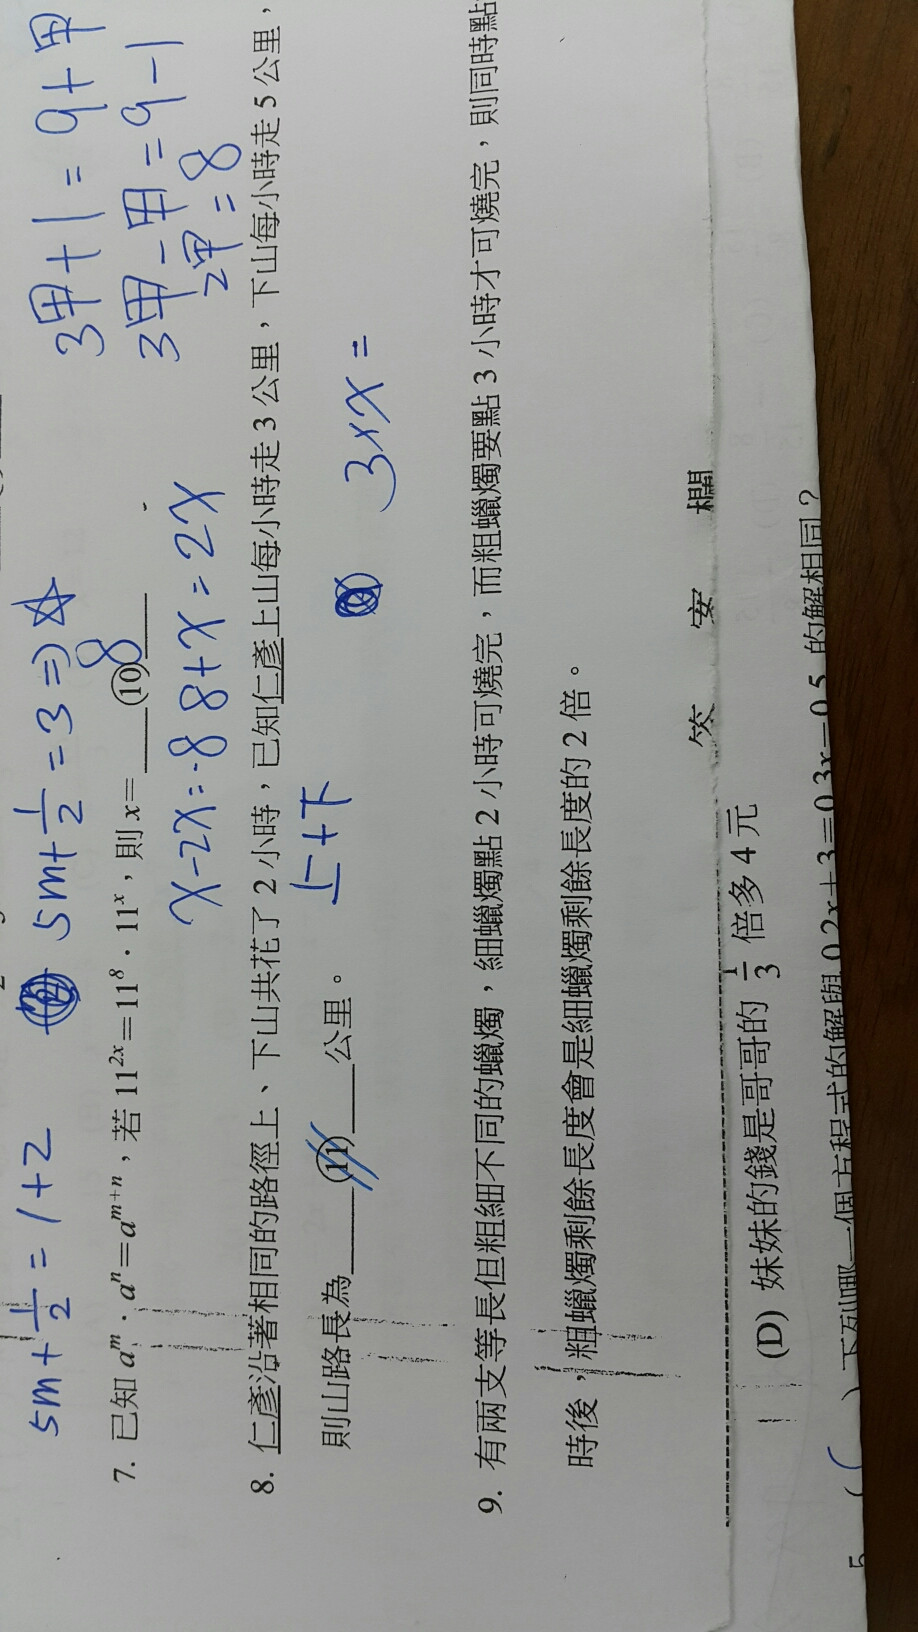 3甲+1=9+甲
5m+1/2=1+2 5m+1/2=3⇒☆ 3甲-甲=9-1
2甲=8
7. 已知 a^m·a^n=a^(m+n),若 11^(2x)=11^8·11^x,則 x= (10) 8
x-2x=-8 8+x=2x
8. 仁彥沿著相同的路徑上、下山共花了 2 小時,已知仁彥上山每小時走 3 公里,下山每小時走 5 公里,
則山路長為 (11) 公里。
上+下 3×x=
9. 有兩支等長但粗細不同的蠟燭,細蠟燭點 2 小時可燒完,而粗蠟燭要點 3 小時才可燒完,則同時點
時後,粗蠟燭剩餘長度會是細蠟燭剩餘長度的 2 倍。
欄
(D) 妹妹的錢是哥哥的 1/3 倍多 4 元
5 ( ) 下列哪一個方程式的解與 0.2x+3=0.3x-0.5 的解相同?